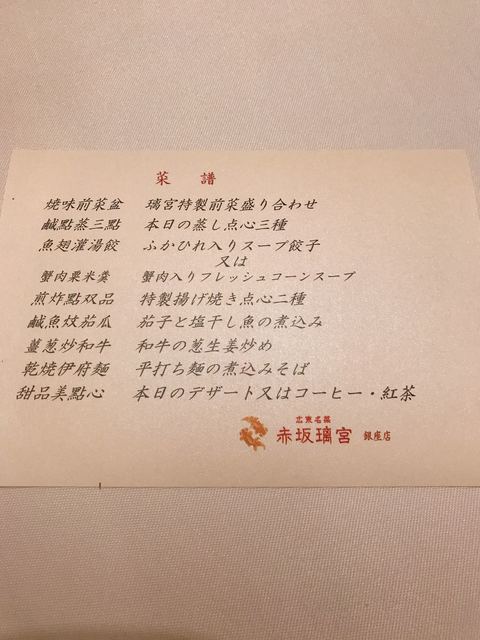 菜譜
焼味前菜盆 璃宮特製前菜盛り合わせ
鹹點蒸三點 本日の蒸し点心三種
魚翅灌湯餃 ふかひれ入りスープ餃子
又は
蟹肉粟米羹 蟹肉入りフレッシュコーンスープ
煎炸點双品 特製揚げ焼き点心二種
鹹魚炆茄瓜 茄子と塩干し魚の煮込み
薑葱炒和牛 和牛の葱生姜炒め
乾焼伊府麵 平打ち麺の煮込みそば
甜品美點心 本日のデザート又はコーヒー・紅茶
広東名菜
赤坂璃宮 銀座店